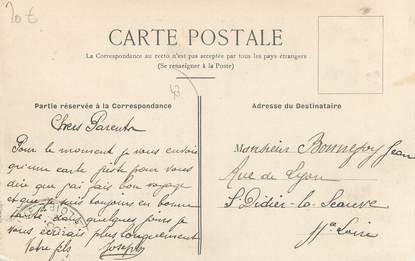 20 €
CARTE POSTALE
La Correspondance au recto n'est pas acceptée par tous les pays étrangers
(Se renseigner à la Poste)
Partie réservée à la Correspondance
Adresse du Destinataire
Chers Parents
Pour le moment je vous envois
qu'une carte juste pour vous
dire que j'ai fais bon voyage
et que je suis toujours en bonne
santé, dans quelques jours je
vous écrirais plus longuement
Votre fils Joseph
Monsieur Bonnefoy Jean
Rue de Lyon
St Didier-la-Seauve
Hte Loire